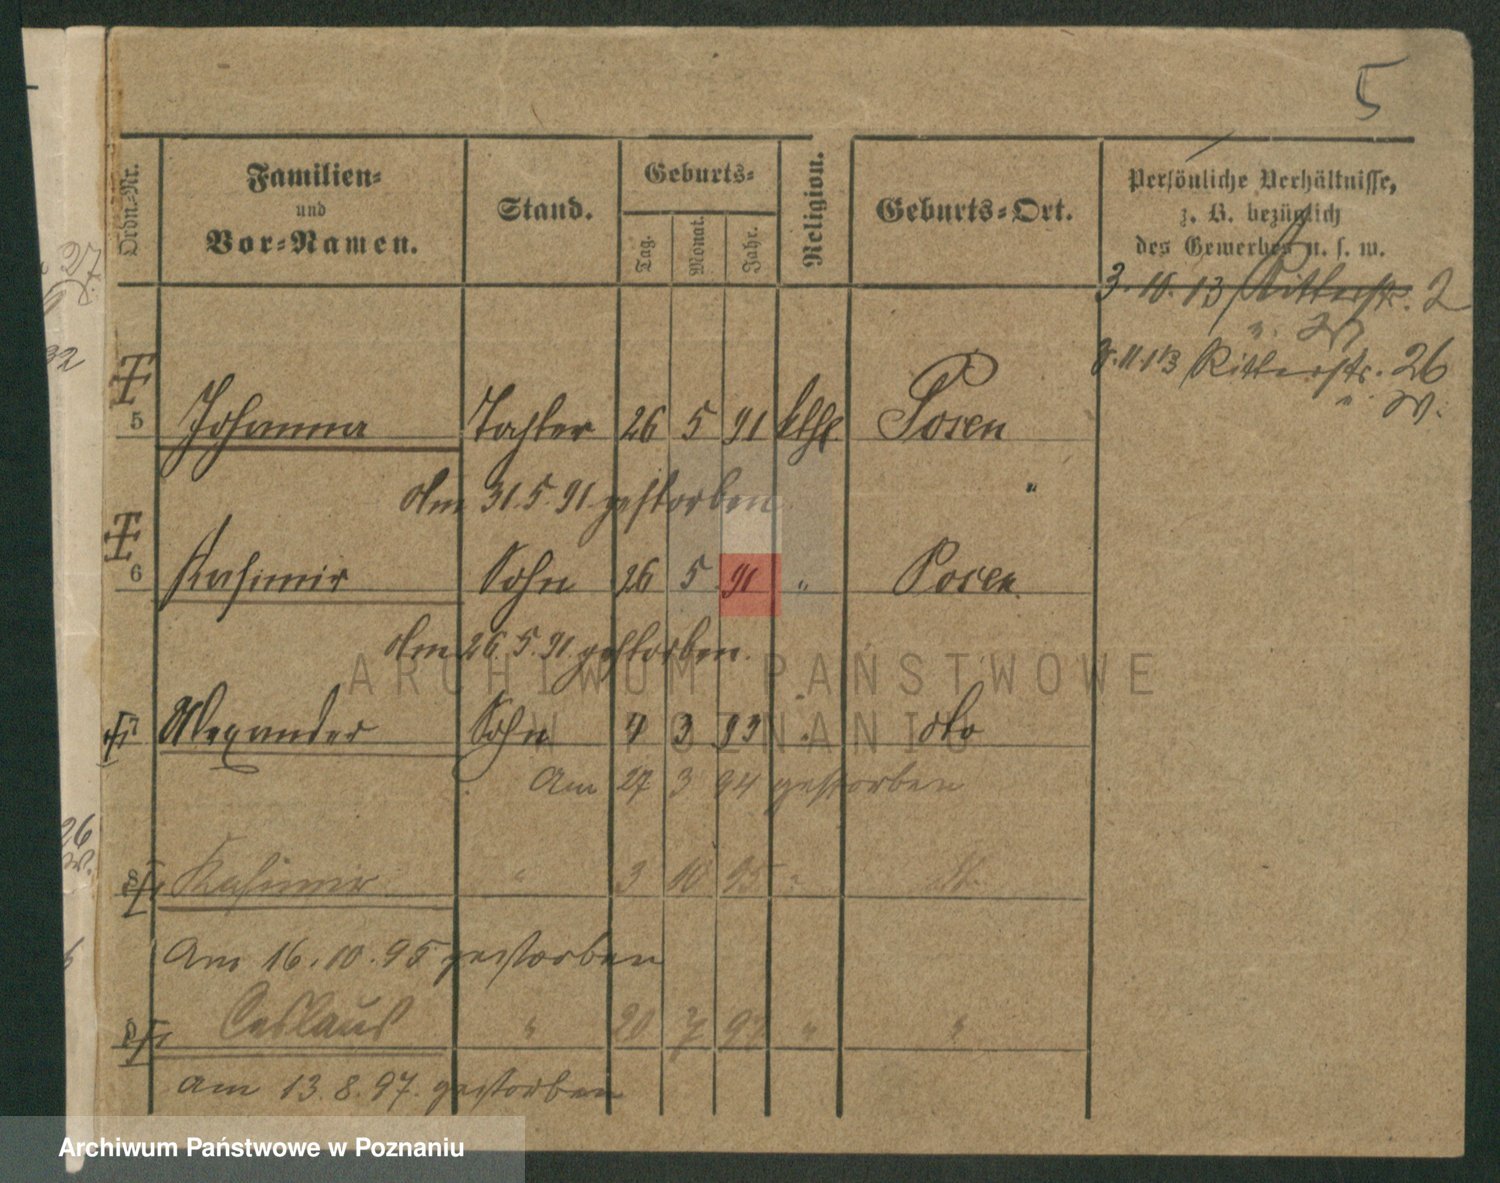 5
Ordn.-Nr.
Familien-
und
Vor-Namen.
Stand.
Geburts-
Tag.
Monat.
Jahr.
Religion.
Geburts-Ort.
Persönliche Verhältnisse,
z. B. bezüglich
des Gewerbes u. s. w.
3. 10. 13 Ritterstr. 2
" W
8. 11. 13 Ritterstr. 26
" W.
5 Johanna Tochter 26 5 91 kth. Posen
Am 31. 5. 91. gestorben "
6 Kasimir Sohn 26 5 91 " Posen
Am 26. 5. 91 gestorben.
7 Alexander Sohn 4 3 93 " dto
Am 27 3 94 gestorben
8 Kasimir " 3 10 95 "
Am 16. 10. 95 gestorben
9 Ceslaus " 20 7 97 " "
Am 13. 8. 97. gestorben
26
ARCHIWUM PAŃSTWOWE
W POZNANIU
Archiwum Państwowe w Poznaniu